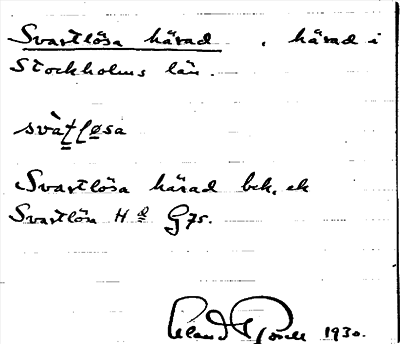 Svartlösa härad, härad i
Stockholms län.
svàṭḷøsa
Svartlösa härad bek. ek
Svartlösa Hd G75.
1930.